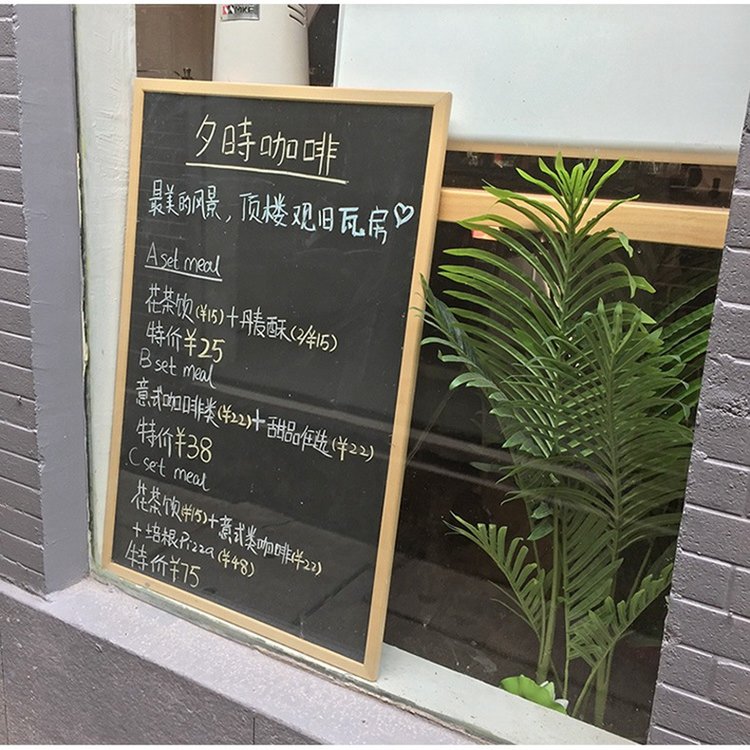 MIKE
夕時咖啡
最美的风景，顶楼观旧瓦房♡
A set meal
花茶饮(¥15)+丹麦酥(2/¥15)
特价¥25
B set meal
意式咖啡类(¥22)+甜品任选(¥22)
特价¥38
C set meal
花茶饮(¥15)+意式类咖啡(¥22)
+培根Pizza(¥48)
特价¥75